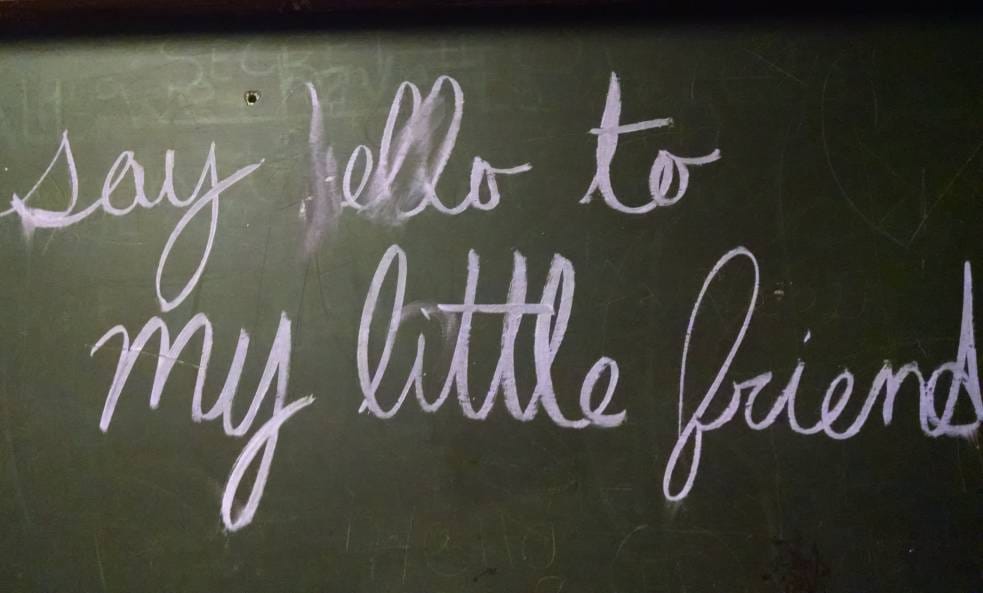 say hello to
my little friend